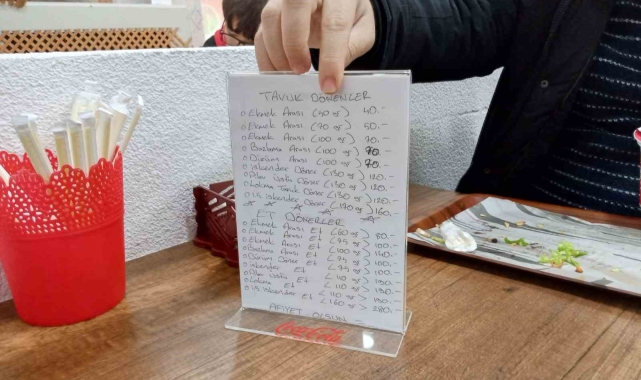 TAVUK DÖNERLER
o Ekmek Arası (50 gr) 40.-
o Ekmek Arası (70 gr) 50.-
o Ekmek Arası (100 gr) 70.-
o Bazlama Arası (100 gr) 70.-
o Dürüm Arası (100 gr) 70.-
o İskender Döner (130 gr) 120.-
o Pilav Üstü Döner (130 gr) 120.-
o Lokma Tavuk Döner (130 gr) 120.-
o 1.5 İskender Döner (170 gr) 160.-
ET DÖNERLER
o Ekmek Arası Et (60 gr) 80.-
o Ekmek Arası Et (75 gr) 100.-
o Ekmek Arası Et (100 gr) 140.-
o Bazlama Arası Et (75 gr) 100.-
o Dürüm Döner Et (75 gr) 100.-
o İskender Et (110 gr)
o Pilav Üstü Et (110 gr)
o Lokma Et (110 gr)
o 1.5 İskender Et (160 gr) 280.-
AFİYET OLSUN
Coca-Cola